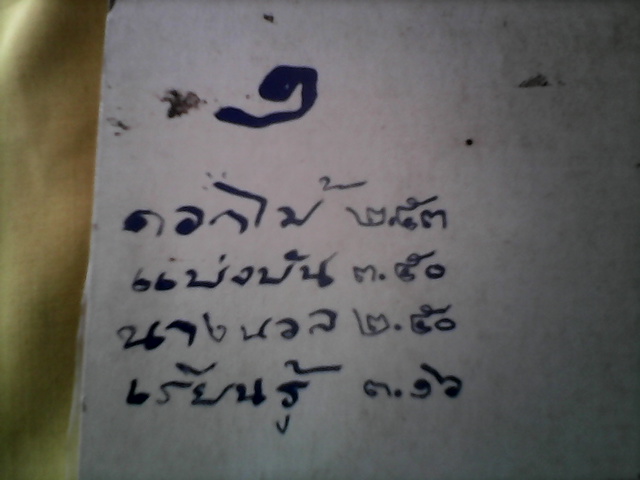 ๑
ดอกไม้ ๒.๕๓
แบ่งบัน ๓.๕๐
นางนวล ๒.๕๐
เรียนรู้ ๓.๑๖